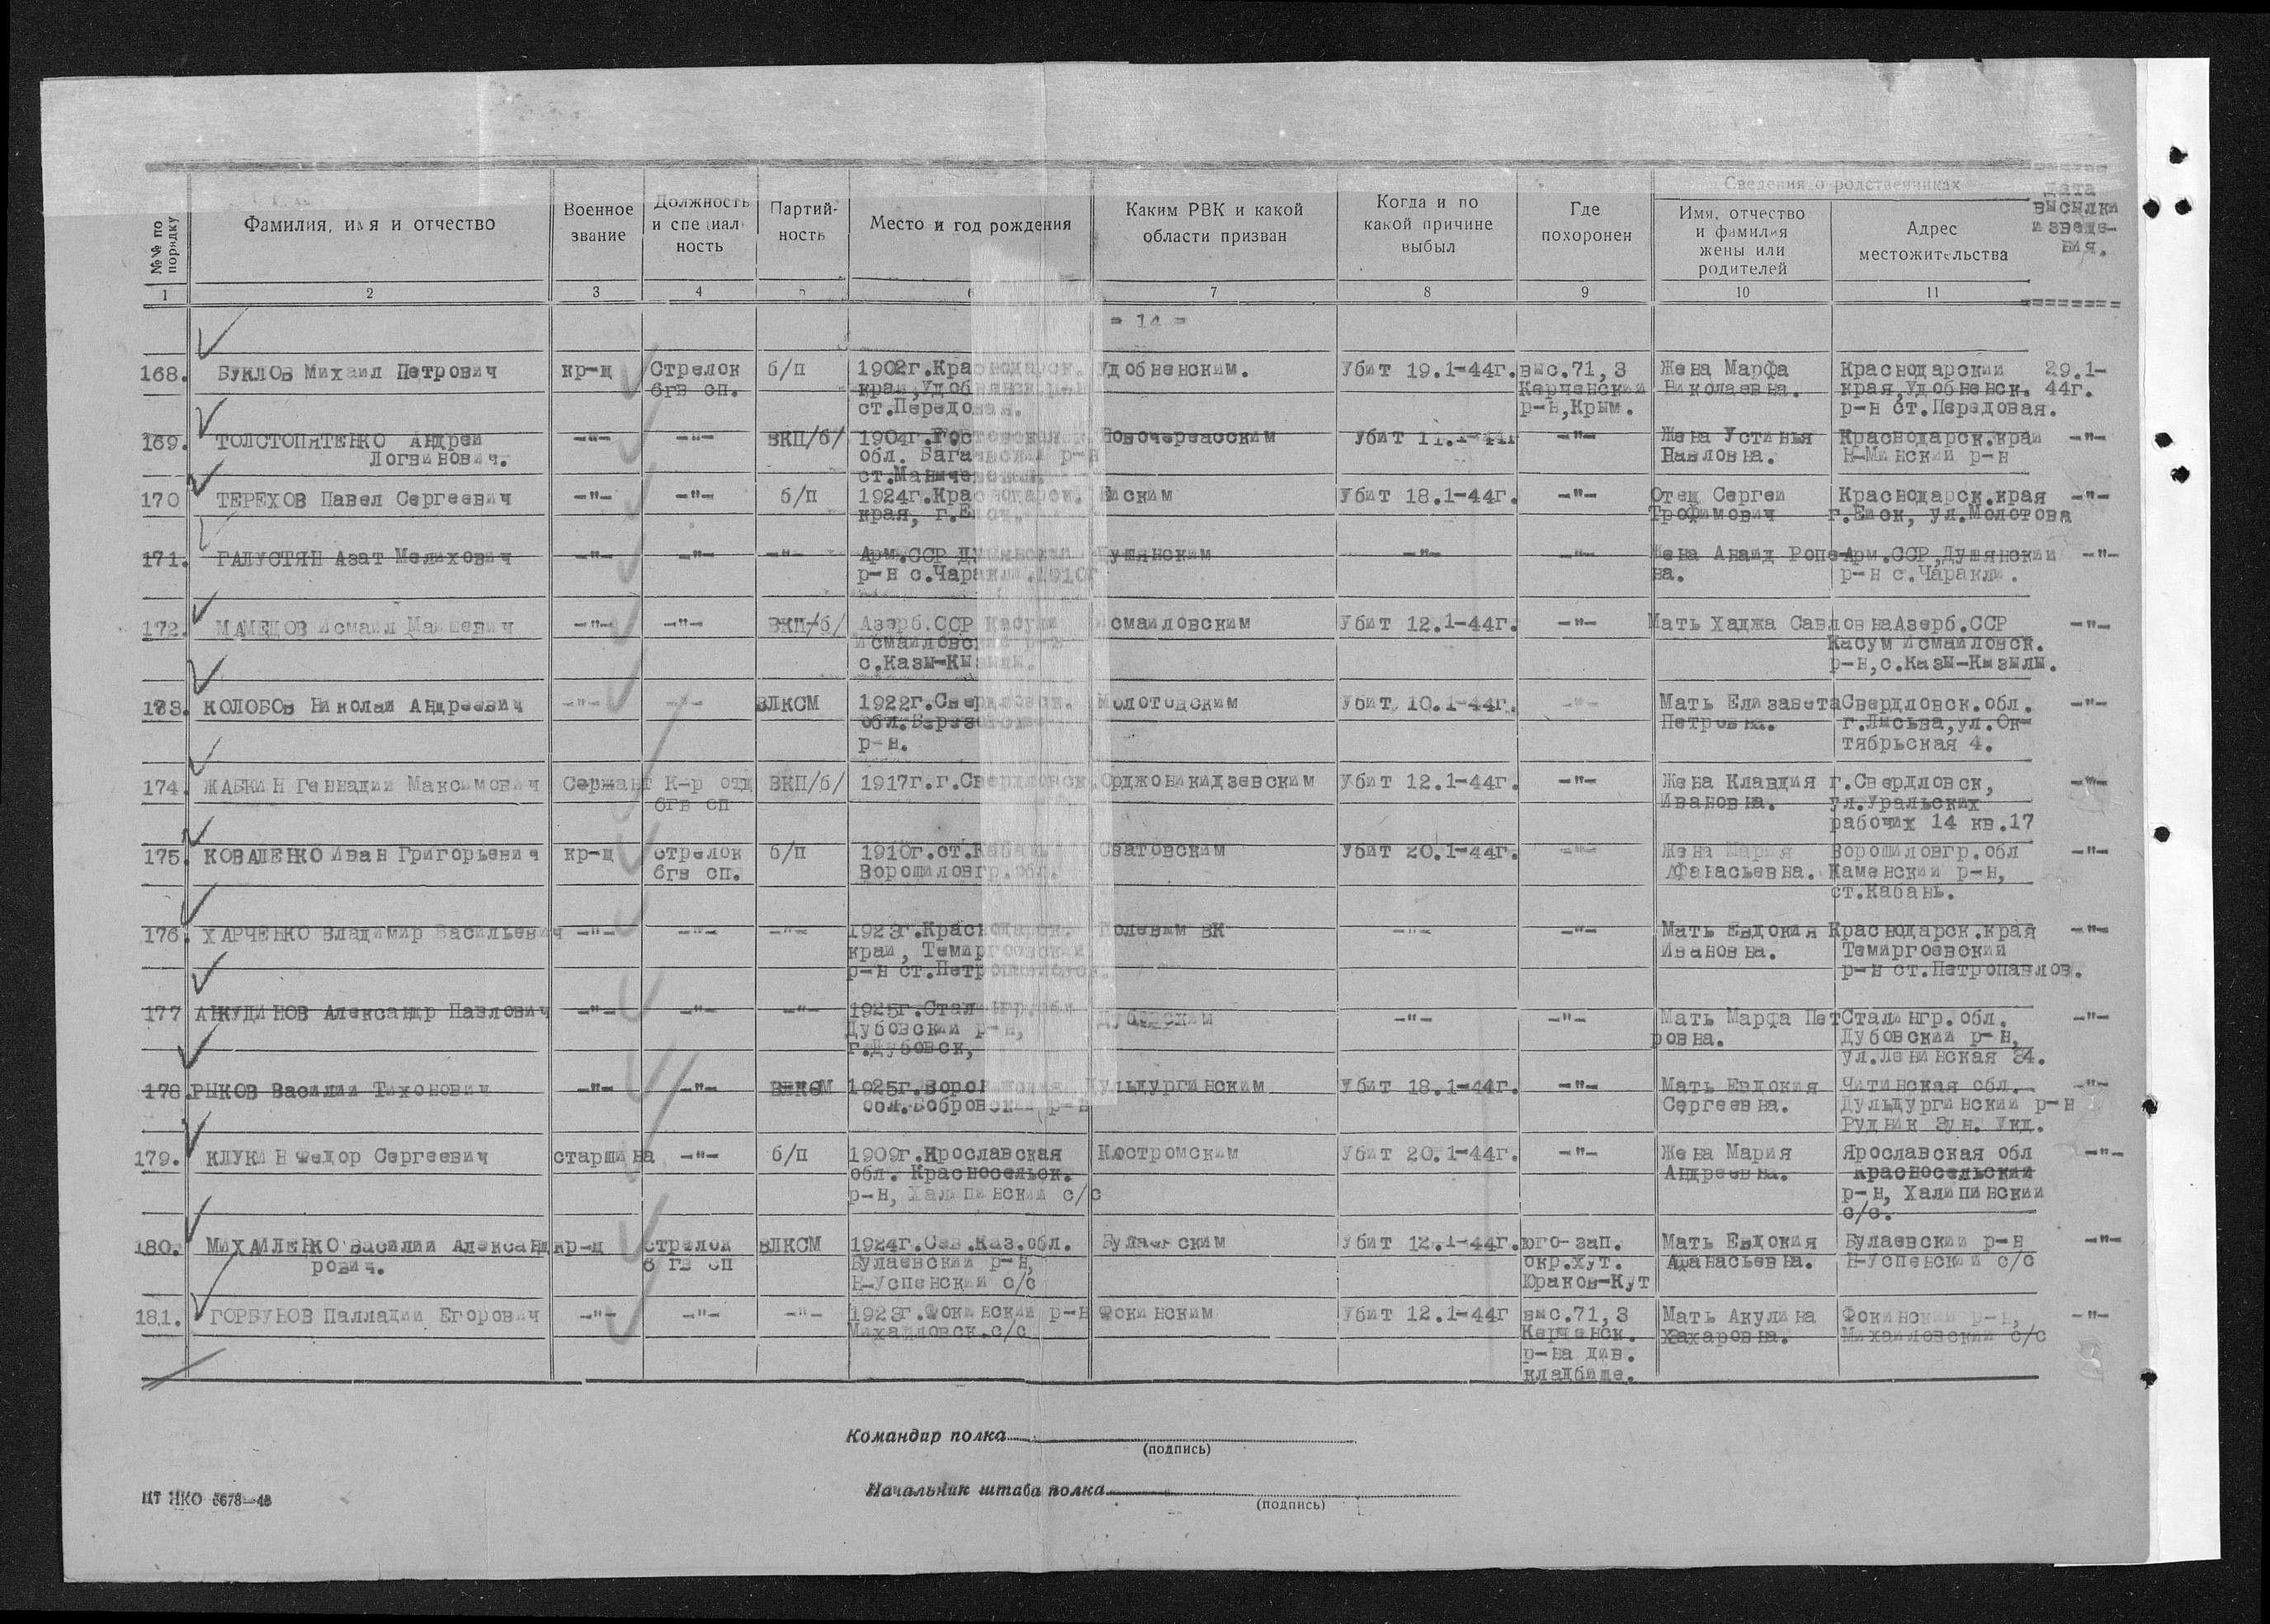 Сведения о родственниках
Дата высылки извещения.
№№ по порядку
Фамилия, имя и отчество
Военное звание
Должность и специальность
Партийность
Место и год рождения
Каким РВК и какой области призван
Когда и по какой причине выбыл
Где похоронен
Имя, отчество и фамилия жены или родителей
Адрес местожительства
1 2 3 4 5 6 7 8 9 10 11
= 14 =
168. БУКЛОВ Михаил Петрович кр-ц Стрелок б/п 1902г.Краснодарск. Удобненским. Убит 19.1-44г. выс.71,3 Жена Марфа Краснодарский 29.1-
6гв сп. край,Удобненск. Керченский Николаевна. края,Удобненск. 44г.
ст.Передовая. р-н,Крым. р-н ст.Передовая.
169. ТОЛСТОПЯТЕНКО Андрей -"- -"- ВКП/б/ 1904г.Ростовская Новочеркасским Убит 11.1-44г -"- Жена Устинья Краснодарск.край -"-
Логвинович. обл. Багаевский р-н Павловна. Н-Минский р-н
ст.Манычевская
170 ТЕРЕХОВ Павел Сергеевич -"- -"- б/п 1924г.Краснодарск. Ейским Убит 18.1-44г. -"- Отец Сергей Краснодарск.края -"-
края, г.Ейск. Трофимович г.Ейск, ул.Молотова
171. ГАЛУСТЯН Азат Мелихович -"- -"- -"- Арм.ССР Душянским -"- -"- Жена Анаид Ропе- Арм.ССР,Душянский -"-
р-н с.Чаракли.1910г на. р-н с.Чаракли.
172. МАМЕДОВ Исмаил -"- -"- ВКП/б/ Азерб.ССР Касум Исмаиловским Убит 12.1-44г. -"- Мать Хаджа Савловна Азерб.ССР -"-
Исмаиловский р-н Касум Исмаиловск.
с.Казы-Кызылы. р-н,с.Казы-Кызылы.
173. КОЛОБОв Николай Андреевич -"- -"- ВЛКСМ 1922г.Свердловск. Молотовским Убит 10.1-44г. -"- Мать Елизавета Свердловск.обл. -"-
обл.Березовский Петровна. г.Лысьва,ул.Ок-
р-н. тябрьская 4.
174. ЖАБКИН Геннадий Максимович Сержант К-р отд ВКП/б/ 1917г.г.Свердловск. Орджоникидзевским Убит 12.1-44г. -"- Жена Клавдия г.Свердловск, -"-
6гв сп Ивановна. ул.Уральских
рабочих 14 кв.17
175. КОВАЛЕНКО Иван Григорьевич кр-ц стрелок б/п 1910г.ст.Кабань Сватовским Убит 20.1-44г. -"- Жена Мария Ворошиловгр.обл -"-
6гв сп. Ворошиловгр.обл. Афанасьевна. Каменский р-н,
ст.Кабань.
176. ХАРЧЕНКО Владимир Васильевич -"- -"- -"- 1923г.Краснодарск. Полевым ВК -"- -"- Мать Евдокия Краснодарск.края -"-
край, Темиргоевский Ивановна. Темиргоевский
р-н ст.Петропавловск. р-н ст.Петропавлов.
177 АНКУДИНОВ Александр Павлович -"- -"- -"- 1925г.Сталингр.обл Дубовским -"- -"- Мать Марфа Пет Сталингр.обл. -"-
Дубовский р-н, ровна. Дубовский р-н,
г.Дубовск, ул.Ленинская 34.
178. РЫКОВ Василий Тихонович -"- -"- ВЛКСМ 1925г.Воронежская Дульдургинским Убит 18.1-44г. -"- Мать Евдокия Читинская обл. -"-
обл.Бобровский р-н Сергеевна. Дульдургинский р-н
Рудник Зун.
179. КЛУКИН Федор Сергеевич старшина -"- б/п 1909г.Ярославская Костромским Убит 20.1-44г. -"- Жена Мария Ярославская обл -"-
обл. Красносельск. Андреевна. Красносельский
р-н, Халипинский с/с р-н, Халипинский
с/с.
180. МИХАЙЛЕНКО Василий Александ кр-ц стрелок ВЛКСМ 1924г.Сев.Каз.обл. Булаевским Убит 12.1-44г. юго-зап. Мать Евдокия Булаевский р-н -"-
рович. 6 гв сп Булаевский р-н, окр.хут. Афанасьевна. Н-Успенский с/с
Н-Успенский с/с Юраков-Кут
181. ГОРБУНОВ Палладий Егорович -"- -"- -"- 1923г.Фокинский р-н Фокинским Убит 12.1-44г выс.71,3 Мать Акулина Фокинский р-н, -"-
Михайловск.с/с Керченск. Захаровна. Михайловский с/с
р-на див.
кладбище.
Командир полка
(подпись)
Начальник штаба полка
(подпись)
ЦТ НКО 5678—43